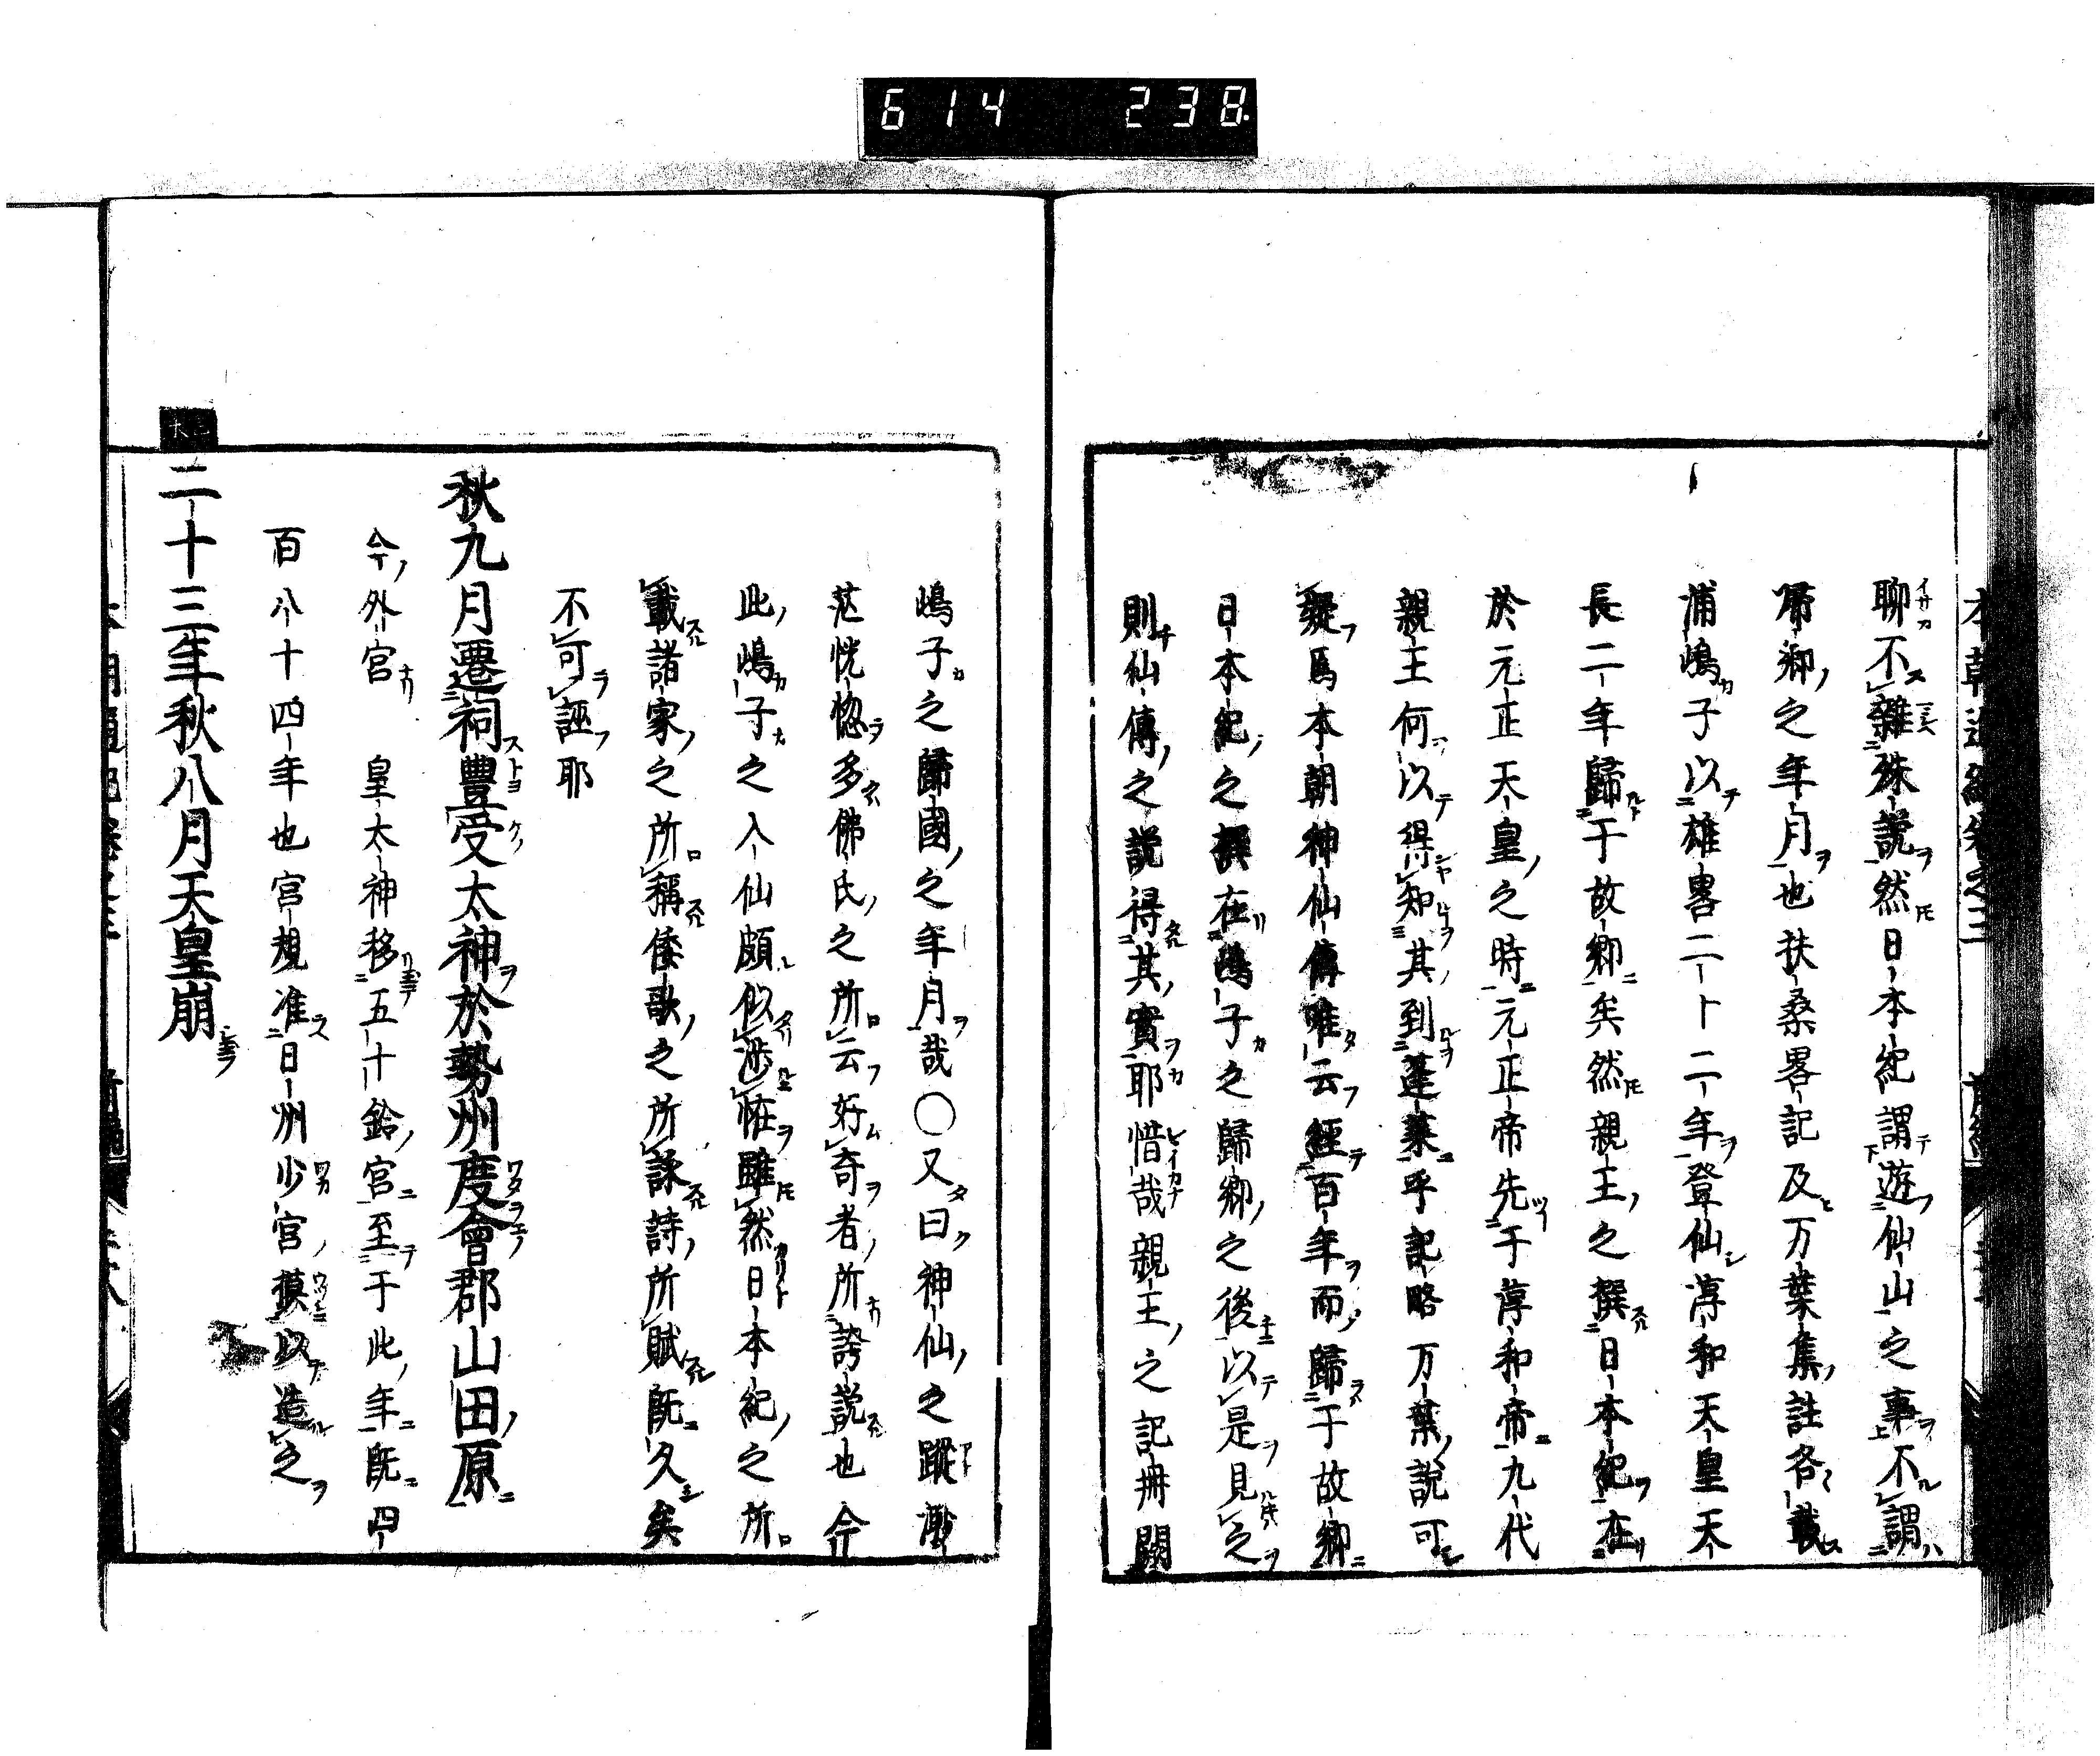 614 238
聊不雜殊説然日本紀謂遊仙山之事不謂
帰郷之年月也扶桑畧記及万葉集註各載
浦嶋子以雄畧二十二年登仙淳和天皇天
長二年歸于故郷矣然親王之撰日本紀在
於元正天皇之時元正帝先于淳和帝九代
親王何以得知其到蓬萊乎記略万葉説可
疑焉本朝神仙傳唯云經百年而歸于故郷
日本紀之撰在嶋子之歸郷之後以是見之
則仙傳之説得其實耶惜哉親王之記冊闕
嶋子之歸國之年月哉〇又曰神仙之蹤渺
茫恍惚多佛氏之所云好奇者所誇説也今
此嶋子之入仙頗似渉怪雖然日本紀之所
載諸家之所稱倭歌之所詠詩所賦既久矣
不可誣耶
秋九月遷祠豊受太神於勢州度會郡山田原
今外宮 皇太神移五十鈴宮至于此年既四
百八十四年也宮規准日州少宮摸以造之
二十三年秋八月天皇崩